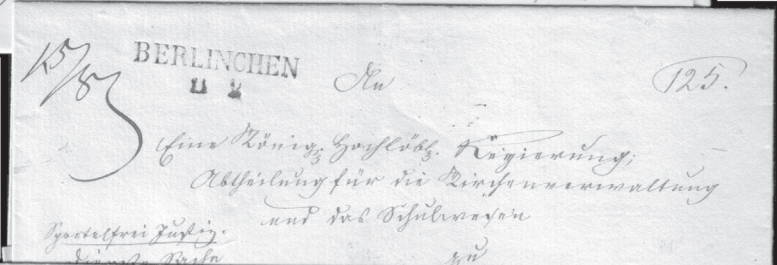 15/8
BERLINCHEN
11 2
An
125.
Eine Königl. Hochlöbl. Regierung,
Abtheilung für die Kirchenverwaltung
und das Schulwesen
Sportelfrei Justiz.
Dienst Sache
zu